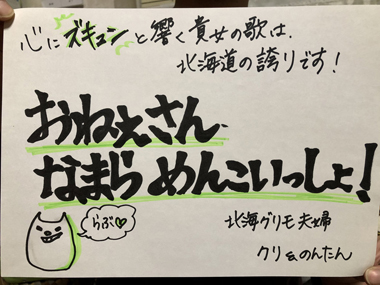 心にズキュンと響く貴女の歌は、
北海道の誇りです！
おねぇさん
なまら めんこいっしょ！
らぶ♡
北海グリモ夫婦
クリ&のんたん